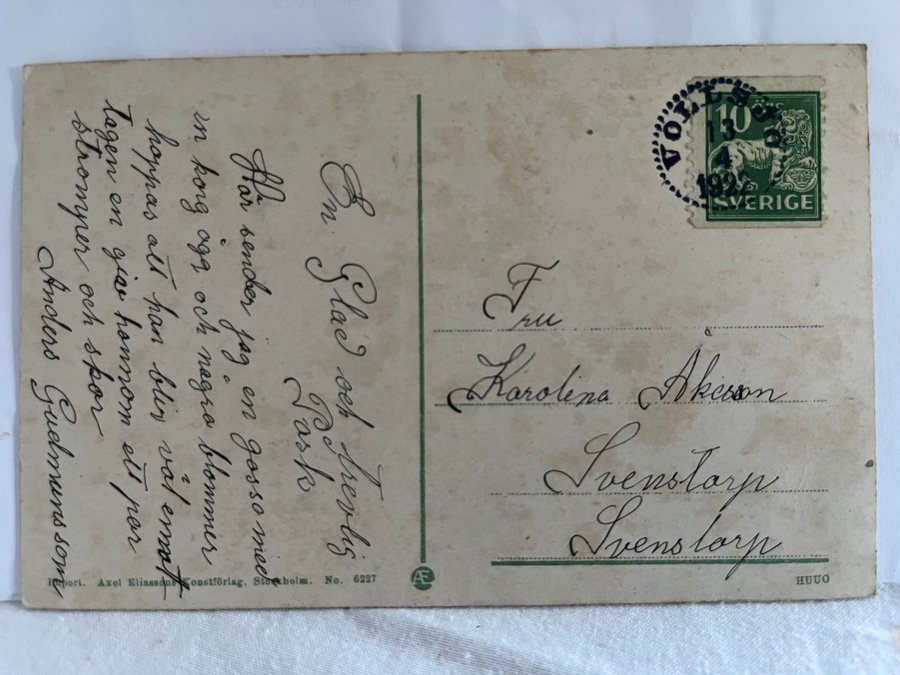 En Glad och trevlig
Påsk
Här sender jag en gosse med
in korg ägg och nagra blommer
hoppas att han blir väl emot
tagen en giav honnom ett par
strømper och skor
Anders Gudmunsson
VOLLSJÖ
13
4
192
10 ÖRE
SVERIGE
Fru
Karolina Åkesson
Svenstorp
Svenstorp
Import. Axel Eliassons Konstförlag, Stockholm. No. 6227
AE
HUUO